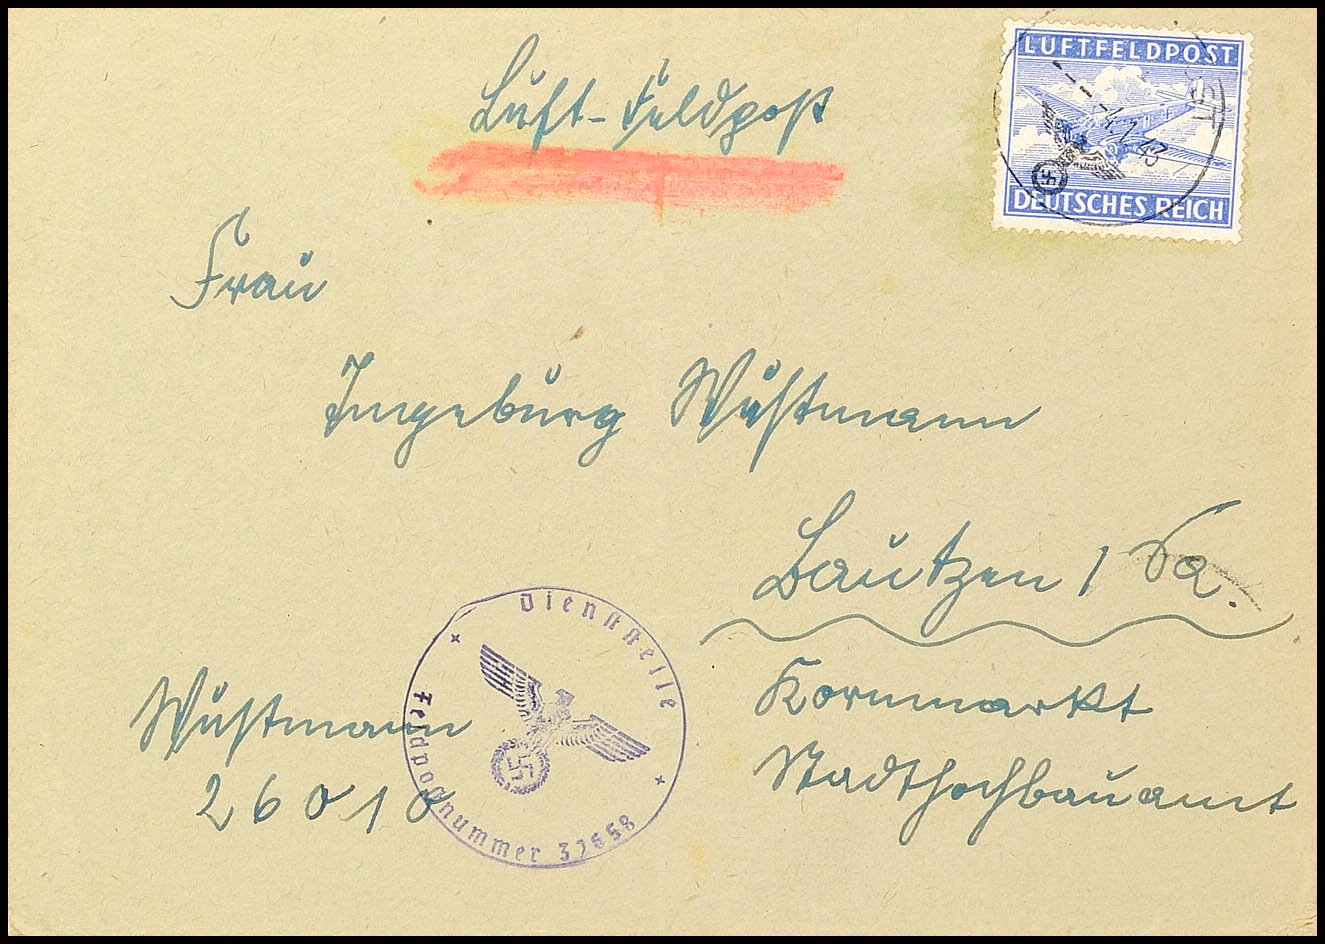 Luft-Feldpost
LUFTFELDPOST
4.7.43
DEUTSCHES REICH
Frau
Ingeburg Wustmann
Bautzen 1 Sa.
Kornmarkt
Stadthochbauamt
Wustmann
26010
Dienststelle
Feldpostnummer 37658